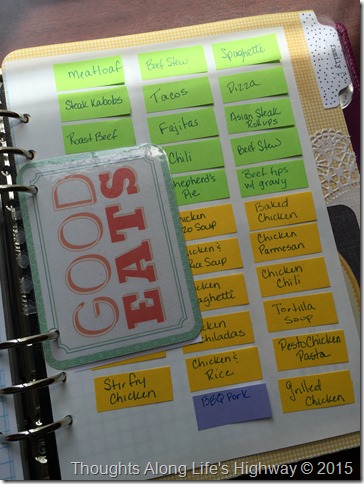 Meatloaf
Beef Stew
Spaghetti
Steak Kabobs
Tacos
Pizza
Roast Beef
Fajitas
Asian Steak
Chili
Beef Stew
Shepherd's
Pie
Beef tips
w/ gravy
Chicken
Soup
Baked
Chicken
Chicken &
Soup
Chicken
Parmesan
Chicken
Spaghetti
Chicken
Chili
Chicken
Enchiladas
Tortilla
Soup
Chicken &
Rice
Pesto Chicken
Pasta
Stir fry
Chicken
BBQ Pork
Grilled
Chicken
GOOD
EATS
Thoughts Along Life's Highway © 2015